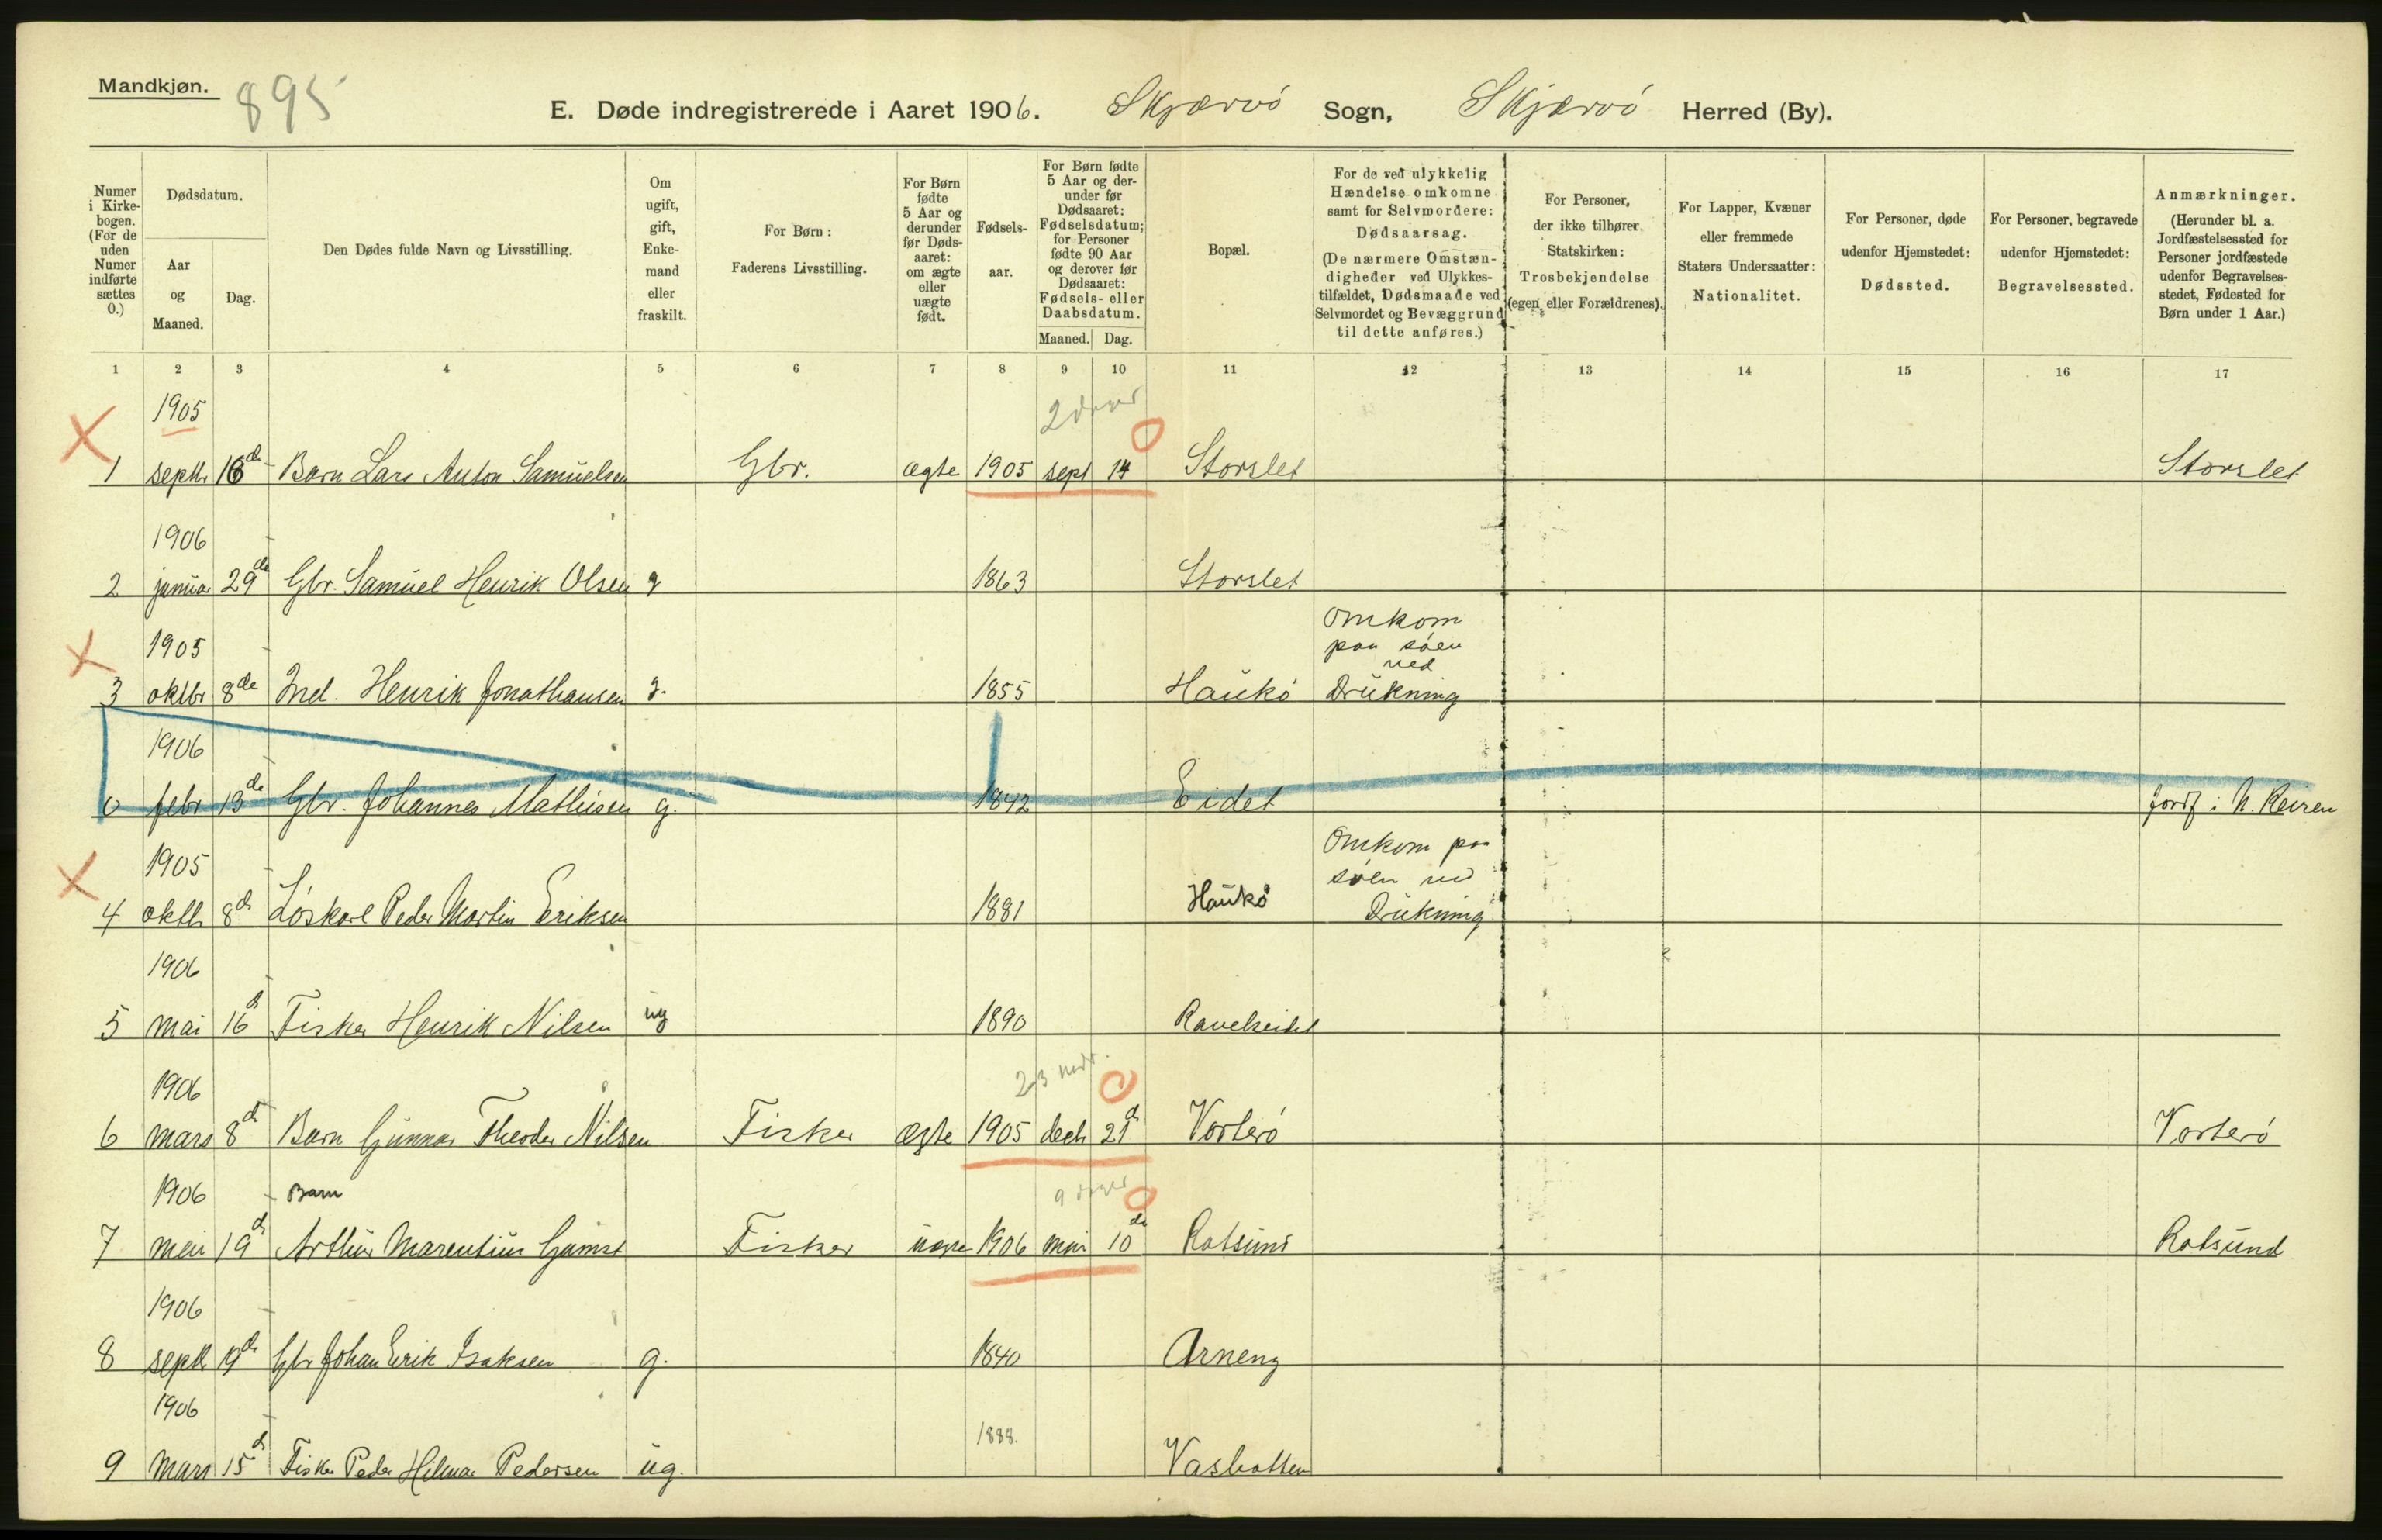 Mandkjøn.
895
E. Døde indregistrerede i Aaret 1906. Skjærvö Sogn, Skjærvö Herred (By).
Numer i Kirke-bogen. (For de uden Numer indførte sættes 0.)
Dødsdatum.
Aar og Maaned.
Dag.
Den Dødes fulde Navn og Livsstilling.
Om ugift, gift, Enke-mand eller fraskilt.
For Børn: Faderens Livsstilling.
For Børn fødte 5 Aar og derunder før Døds-aaret: om ægte eller uægte født.
Fødsels-aar.
For Børn fødte 5 Aar og der-under før Dødsaaret: Fødselsdatum; for Personer fødte 90 Aar og derover før Dødsaaret: Fødsels- eller Daabsdatum.
Maaned. Dag.
Bopæl.
For de ved ulykkelig Hændelse omkomne samt for Selvmordere: Dødsaarsag. (De nærmere Omstæn-digheder ved Ulykkes-tilfældet, Dødsmaade ved Selvmordet og Bevæggrund til dette anføres.)
For Personer, der ikke tilhører Statskirken: Trosbekjendelse (egen eller Forældrenes).
For Lapper, Kvæner eller fremmede Staters Undersaatter: Nationalitet.
For Personer, døde udenfor Hjemstedet: Dødssted.
For Personer, begravede udenfor Hjemstedet: Begravelsessted.
Anmærkninger. (Herunder bl. a. Jordfæstelsessted for Personer jordfæstede udenfor Begravelses-stedet, Fødested for Børn under 1 Aar.)
1 2 3 4 5 6 7 8 9 10 11 12 13 14 15 16 17
1905
2 dager
1 septb 16de Barn Lars Anton Samuelsen Gbr. ægte 1905 sept 14 Storslet Storslet
1906
2 januar 29de Gbr. Samuel Henrik Olsen g 1863 Storslet
1905
Omkom
paa söen
ved
3 oktbr 8de Ind. Henrik Jonathansen g. 1855 Haukö Drukning
1906
0 febr 13de Gbr. Johannes Mathisen g. 1842 Eidet Jordf i N. Reisen
1905
Omkom paa
söen ved
4 oktb 8de Löskarl Peder Martin Eriksen 1881 Haukö Drukning
1906
5 mai 16d Fisker Henrik Nilsen ug 1890 Ravelseidet
1906
2-3 mdr.
6 mars 8de Barn Gunnar Theodor Nilsen Fisker ægte 1905 decb 21d Vorterö Vorterö
1906 Barn
9 dager
7 mai 19d Arthur Marentius Gamst Fisker uægte 1906 mai 10de Rotsund Rotsund
1906
8 septb 19de Gbr Johan Erik Isaksen g. 1840 Arneng
1906
1888.
9 mars 15d Fisker Peder Hilmar Pedersen ug. Vasbotten